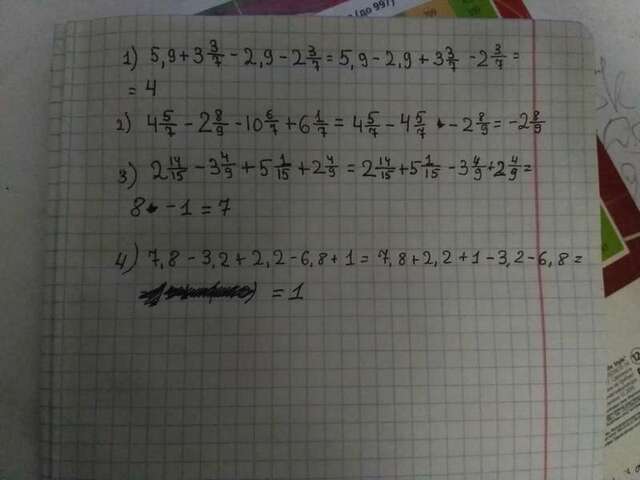 (до 997)
1) 5,9+3 3/7 - 2,9 - 2 3/7 = 5,9 - 2,9 + 3 3/7 - 2 3/7 =
= 4
2) 4 5/7 - 2 8/9 - 10 6/7 + 6 1/7 = 4 5/7 - 4 5/7 - 2 8/9 = -2 8/9
3) 2 14/15 - 3 4/9 + 5 1/15 + 2 4/9 = 2 14/15 + 5 1/15 - 3 4/9 + 2 4/9 =
8 - 1 = 7
4) 7,8 - 3,2 + 2,2 - 6,8 + 1 = 7,8 + 2,2 + 1 - 3,2 - 6,8 =
= 1